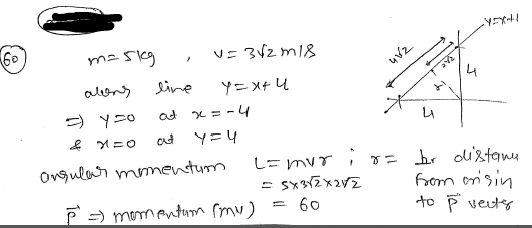 60
m = 5kg , v = 3√2 m/s
along line y = x+4
⇒ y=0 at x = -4
& x=0 at y=4
angular momentum L = mvr ; r = ⊥r distance from origin to p⃗ vector
= 5×3√2×2√2
= 60
p⃗ ⇒ momentum (mv)
y=x+4
4√2
2√2
r
4
4